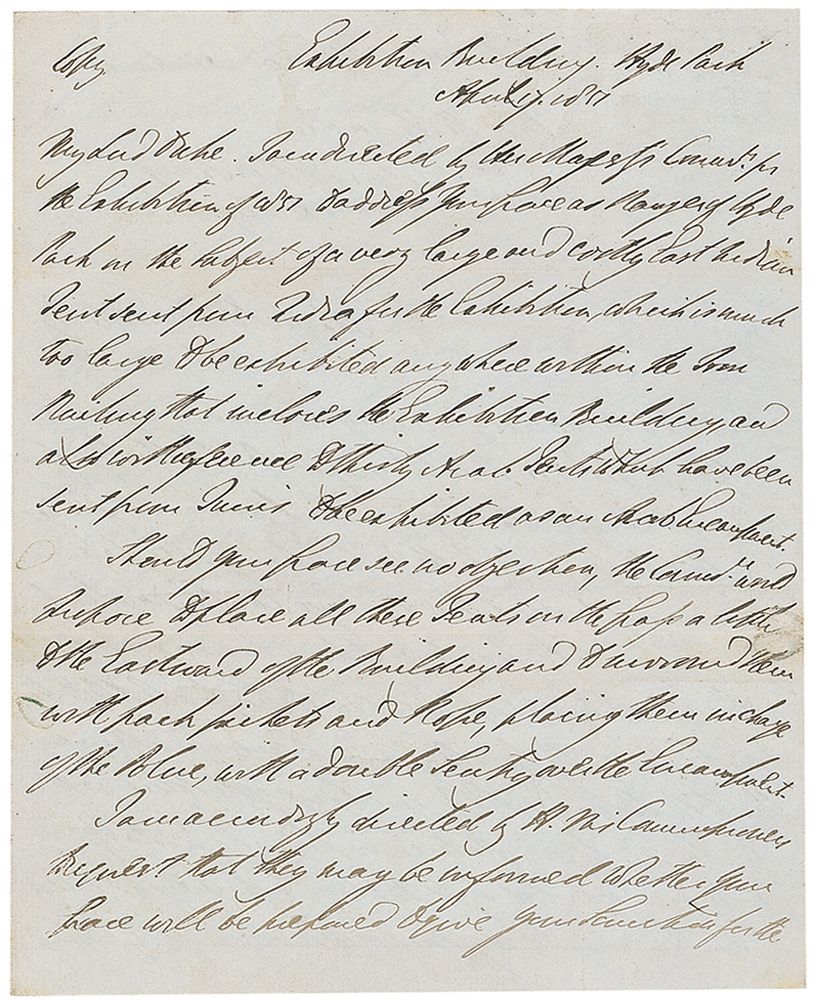 Copy
Exhibition Building. Hyde Park
April 17. 1851
My Lord Duke. I am directed by Her Majesty's Commrs. for
the Exhibition of 1851 to address your Grace as Ranger of Hyde
Park on the subject of a very large and costly East Indian
Tent sent from India for the Exhibition, which is much
too large to be exhibited anywhere within the Iron
Railing that incloses the Exhibition Building, and
also with reference to thirty Arab Tents which have been
sent from Tunis to be exhibited as an Arab Encampment.
Should your Grace see no objection, the Commrs. would
propose to place all these Tents on the grass a little
to the Eastward of the Building and to surround them
with park pickets and Rope, placing them in charge
of the Police, with a double Sentry over the Encampment.
I am accordingly directed by H. M's Commissioners
request that they may be informed whether your
Grace will be prepared to give your sanction for the